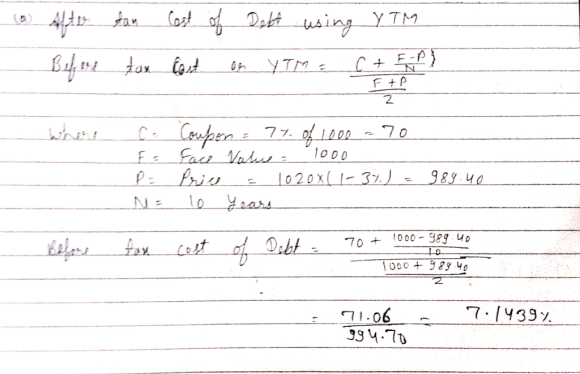 (a) After tax Cost of Debt using YTM
Before tax Cost or YTM = C + F-P/N} / F+P/2
Where C = Coupon = 7% of 1000 = 70
F = Face Value = 1000
P = Price = 1020x(1-3%) = 989.40
N = 10 Years
Before tax cost of Debt = 70 + 1000-989.40/10 / 1000+989.40/2
= 71.06/994.70 = 7.1439%